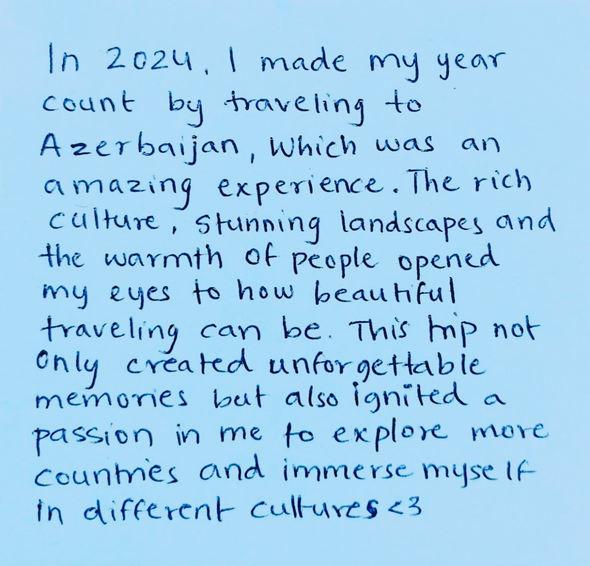 In 2024, I made my year
count by traveling to
Azerbaijan, which was an
amazing experience. The rich
culture, stunning landscapes and
the warmth of people opened
my eyes to how beautiful
traveling can be. This trip not
only created unforgettable
memories but also ignited a
passion in me to explore more
countries and immerse myself
in different cultures <3